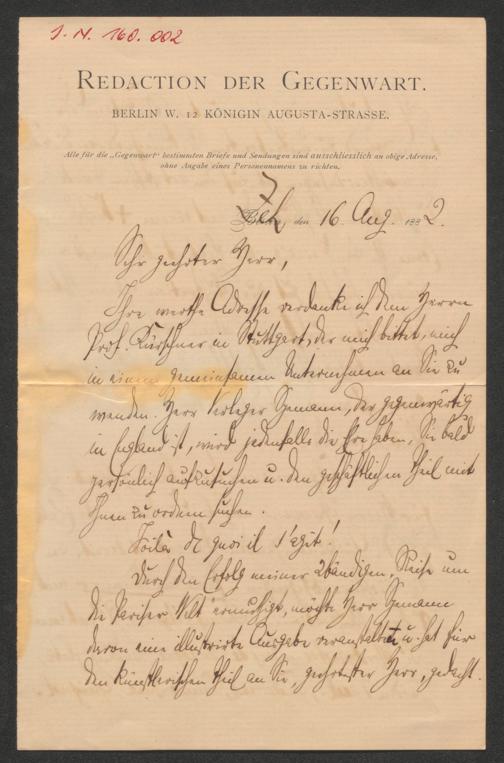 J. N. 160.002
REDACTION DER GEGENWART.
BERLIN W. 12 KÖNIGIN AUGUSTA-STRASSE.
Alle für die „Gegenwart“ bestimmten Briefe und Sendungen sind ausschliesslich an obige Adresse,
ohne Angabe eines Personennamens zu richten.
den 16. Aug. 1882.
Sehr geehrter Herr,
Ihre werthe Adresse verdanke ich dem Herrn
Prof. Kürschner in Stuttgart, der mich bittet, mich
in einem gemeinsamen Unternehmen an Sie zu
wenden. Herr Verleger Spemann, der gegenwärtig
in England ist, wird jedenfalls die Ehre haben, Sie bald
persönlich aufzusuchen u. den geschäftlichen Theil mit
Ihnen zu ordnen suchen.
Voilà de quoi il s'agit!
Durch den Erfolg meiner 2bändigen „Reise um
die Pariser Welt“ ermuthigt, möchte Herr Spemann
davon eine illustrirte Ausgabe veranstalten u. hat für
den künstlerischen Theil an Sie, geehrtester Herr, gedacht.